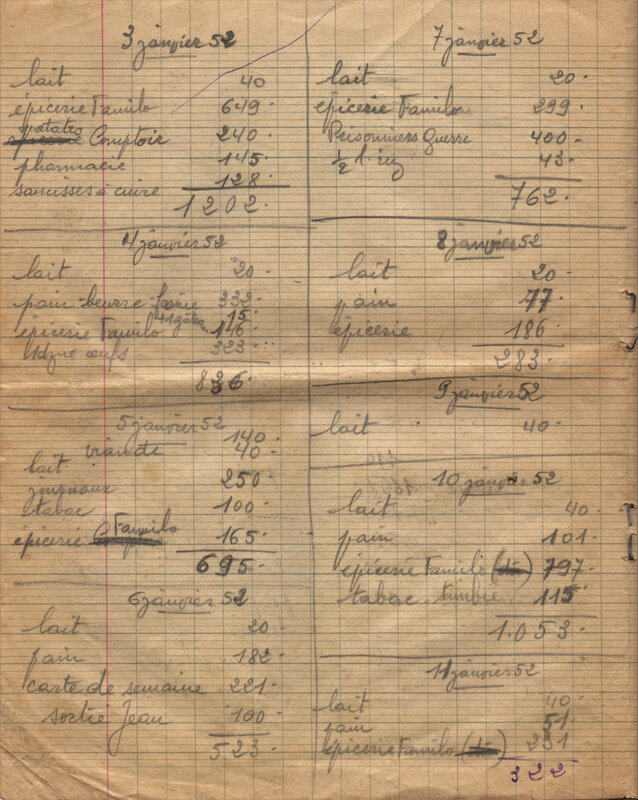 3 janvier 52
lait 40
epicerie Familo 649.
patates
epicerie Comptoir 240.
pharmacie 145.
saucisses à cuire 128.
1202.
4 janvier 52
lait 20.
pain - beurre - farine 332.
+1 gâteau 15.
epicerie Familo 146
1 dzne œufs 323.
836.
5 janvier 52
viande 140.
lait 40.
journaux 250
tabac 100.
Familo
épicerie Comptoir 165.
695.
6 janvier 52
lait 20.
pain 182.
carte de semaine 221.
sortie Jean 100.
523.
7 janvier 52
lait 20.
epicerie Familo 299.
Prisonniers Guerre 400.
½ l. 43.
762.
8 janvier 52
lait 20.
pain 77
epicerie 186.
283.
9 janvier 52
lait 40.
10 janvier 52
lait 40.
pain 101.
epicerie Familo 797.
tabac - timbre 115
1.053.
11 janvier 52
lait 40.
pain 51.
epicerie Familo 231
322